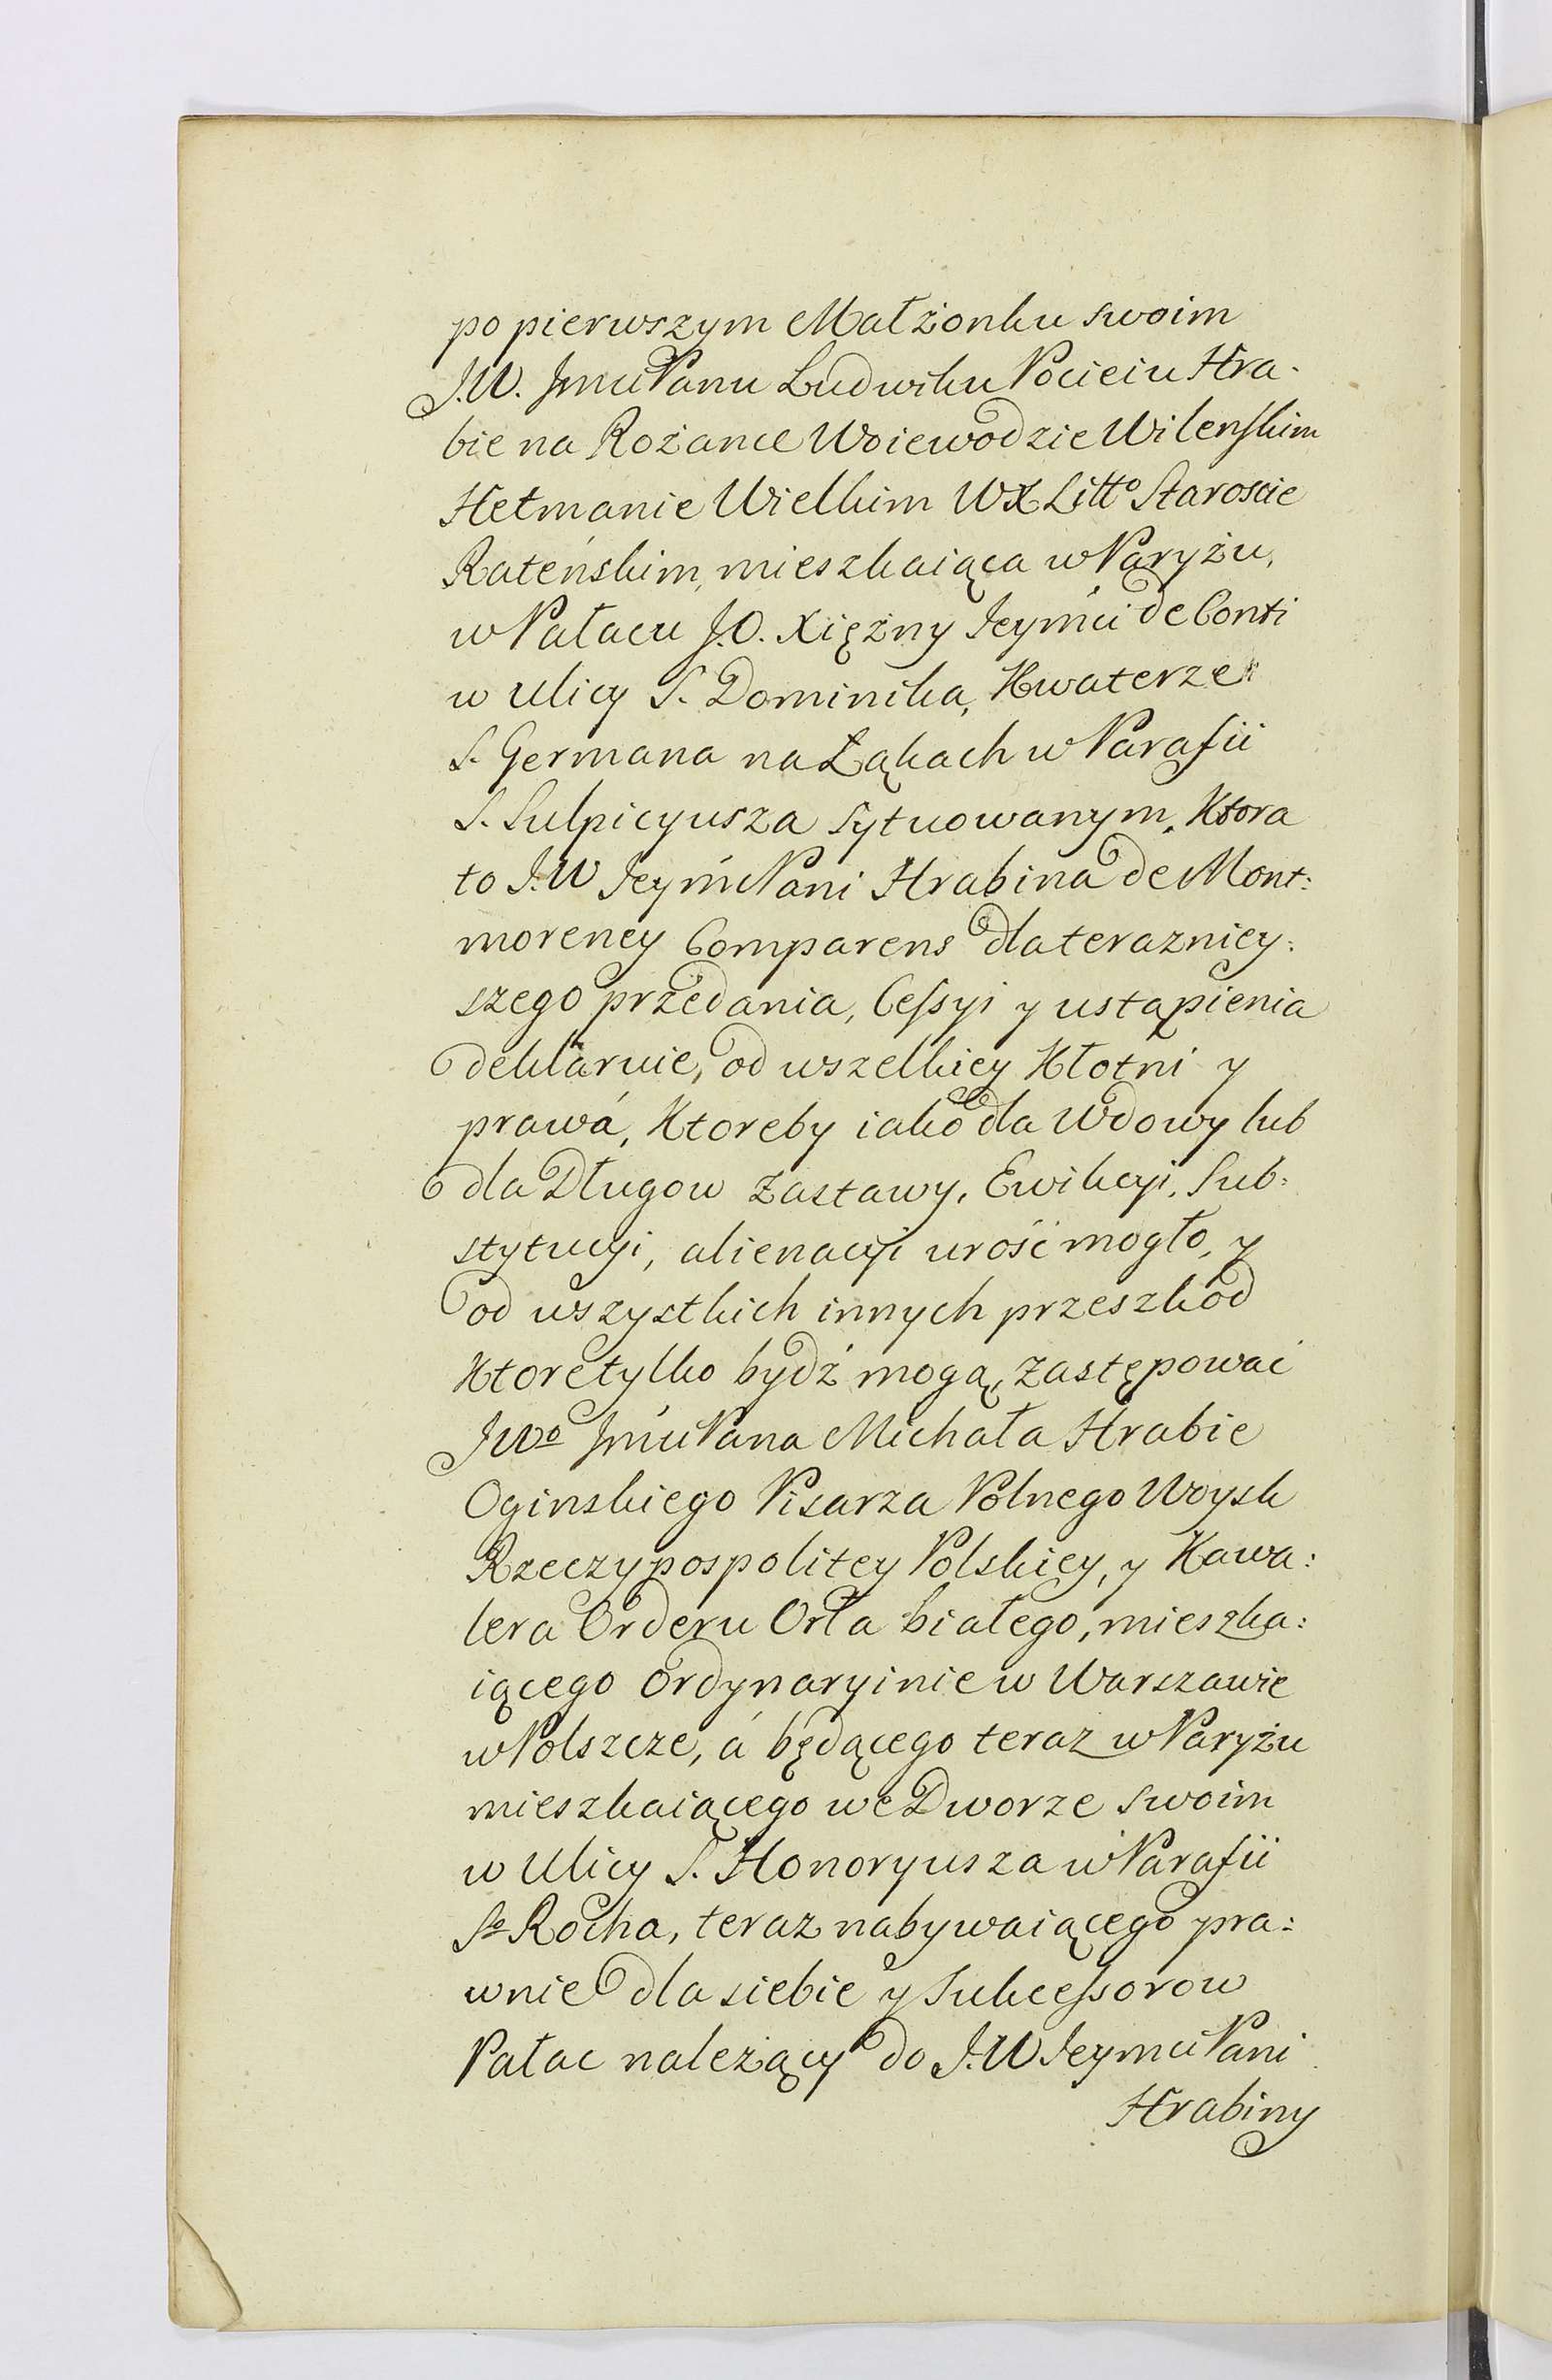 po pierwszym Małżonku swoim
J.W. Jmci Panu Ludwiku Pocieiu Hra-
bie na Rożance Woiewodzie Wilenskim
Hetmanie Wielkim WX Litto Staroscie
Rateńskim, mieszkaiąca w Paryżu,
w Pałacu J.O. Xiężny Jeymci de Conti
w Ulicy S. Dominika, Kwaterze
S. Germana na Łąkach w Parafii
S. Sulpicyusza sytuowanym. Ktora
to J.W Jeymci Pani Hrabina de Mont:
morency Comparens dla terazniey:
szego przedania, Cessyi y ustąpienia
deklaruie, od wszelkiey Kłotni y
prawá, Ktoreby iako dla Wdowy lub
dla Długow Zastawy, Ewikcyi, Sub:
stytucyi, alienacyi urość mogło, y
od wszystkich innych przeszkod
Ktore tylko bydź mogą, zastępowac
JWo Jmci Pana Michała Hrabie
Oginskiego Pisarza Polnego Woysk
Rzeczypospolitey Polskiey, y Kawa:
lera Orderu Orła białego, mieszka:
iącego ordynaryinie w Warszawie
w Polszcze, á będącego teraz w Paryżu
mieszkaiącego we Dworze swoim
w Ulicy S. Honoryusza w Parafii
So Rocha, teraz nabywaiącego pra:
wnie dla siebie y Sukcessorow
Pałac należący do J.W Jeymci Pani
Hrabiny